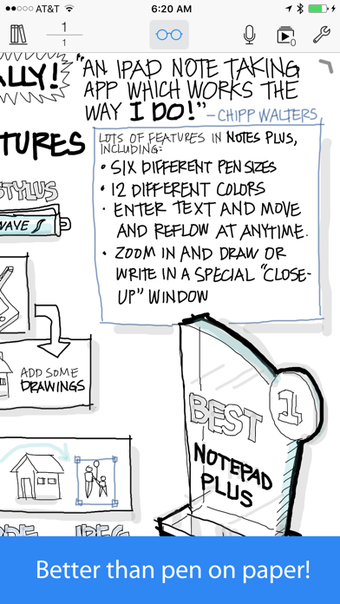 AT&T 6:20 AM
1
1
0
ALLY!
"AN IPAD NOTE TAKING
APP WHICH WORKS THE
WAY I DO!" – CHIPP WALTERS
TURES
LOTS OF FEATURES IN NOTES PLUS,
INCLUDING:
• SIX DIFFERENT PEN SIZES
• 12 DIFFERENT COLORS
• ENTER TEXT AND MOVE
AND REFLOW AT ANYTIME.
• ZOOM IN AND DRAW OR
WRITE IN A SPECIAL "CLOSE-
UP" WINDOW
STYLUS
WAVE
ADD SOME
DRAWINGS
BEST
1
NOTEPAD
PLUS
Better than pen on paper!